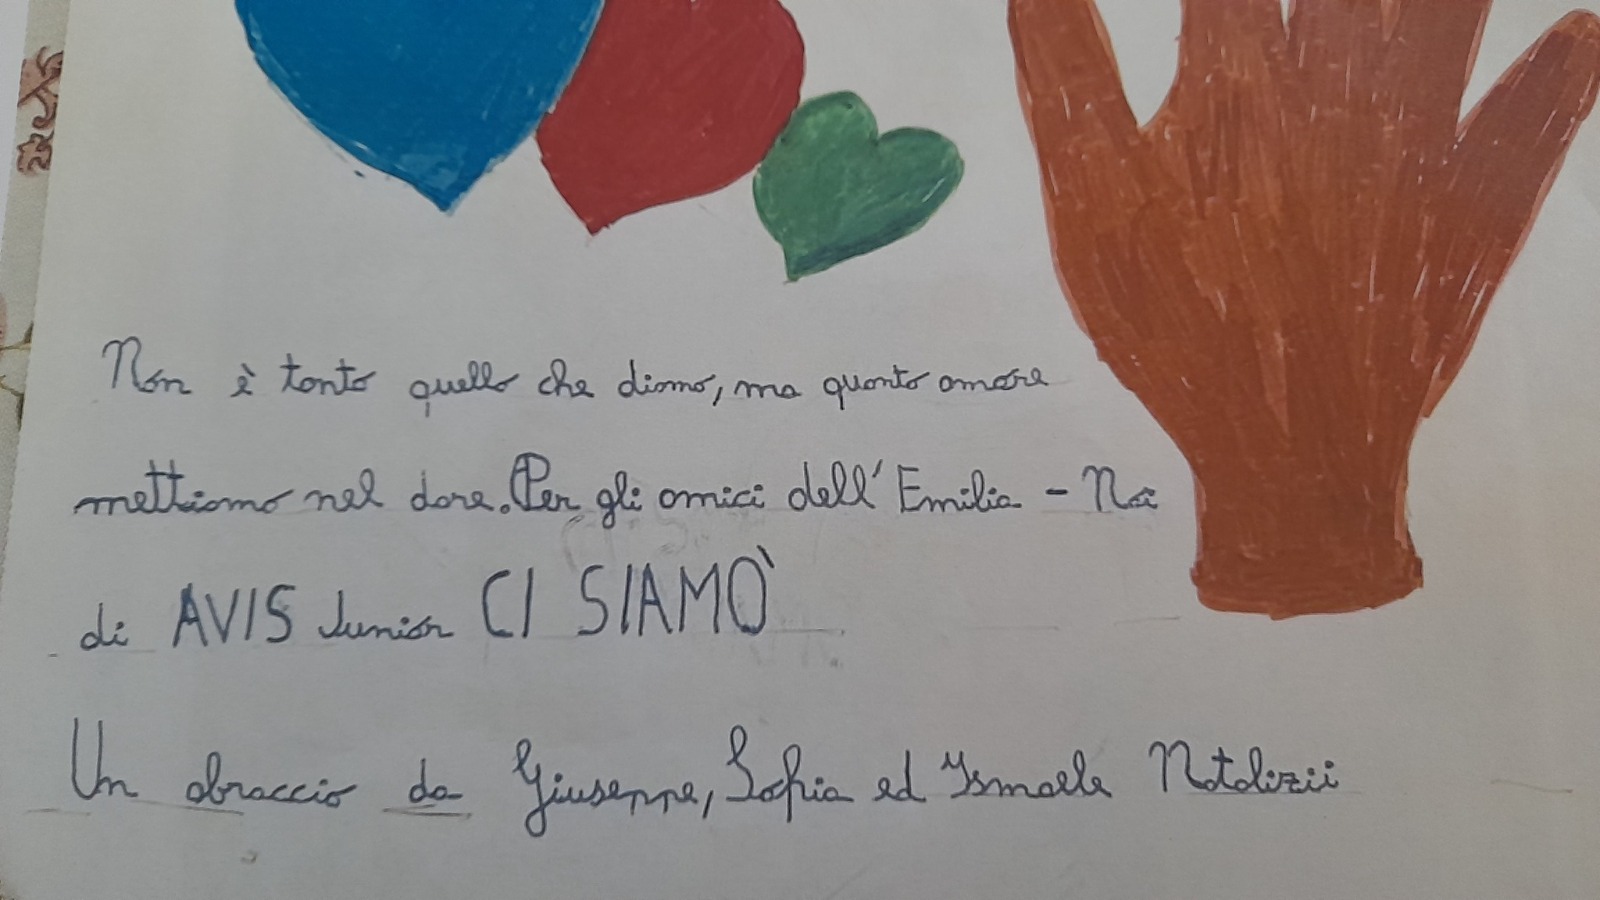 Non è tanto quello che diamo, ma quanto amore
mettiamo nel dare. Per gli amici dell'Emilia - Noi
di AVIS Junior CI SIAMO'
Un abbraccio da Giuseppe, Sofia ed Ismaele Natalizii